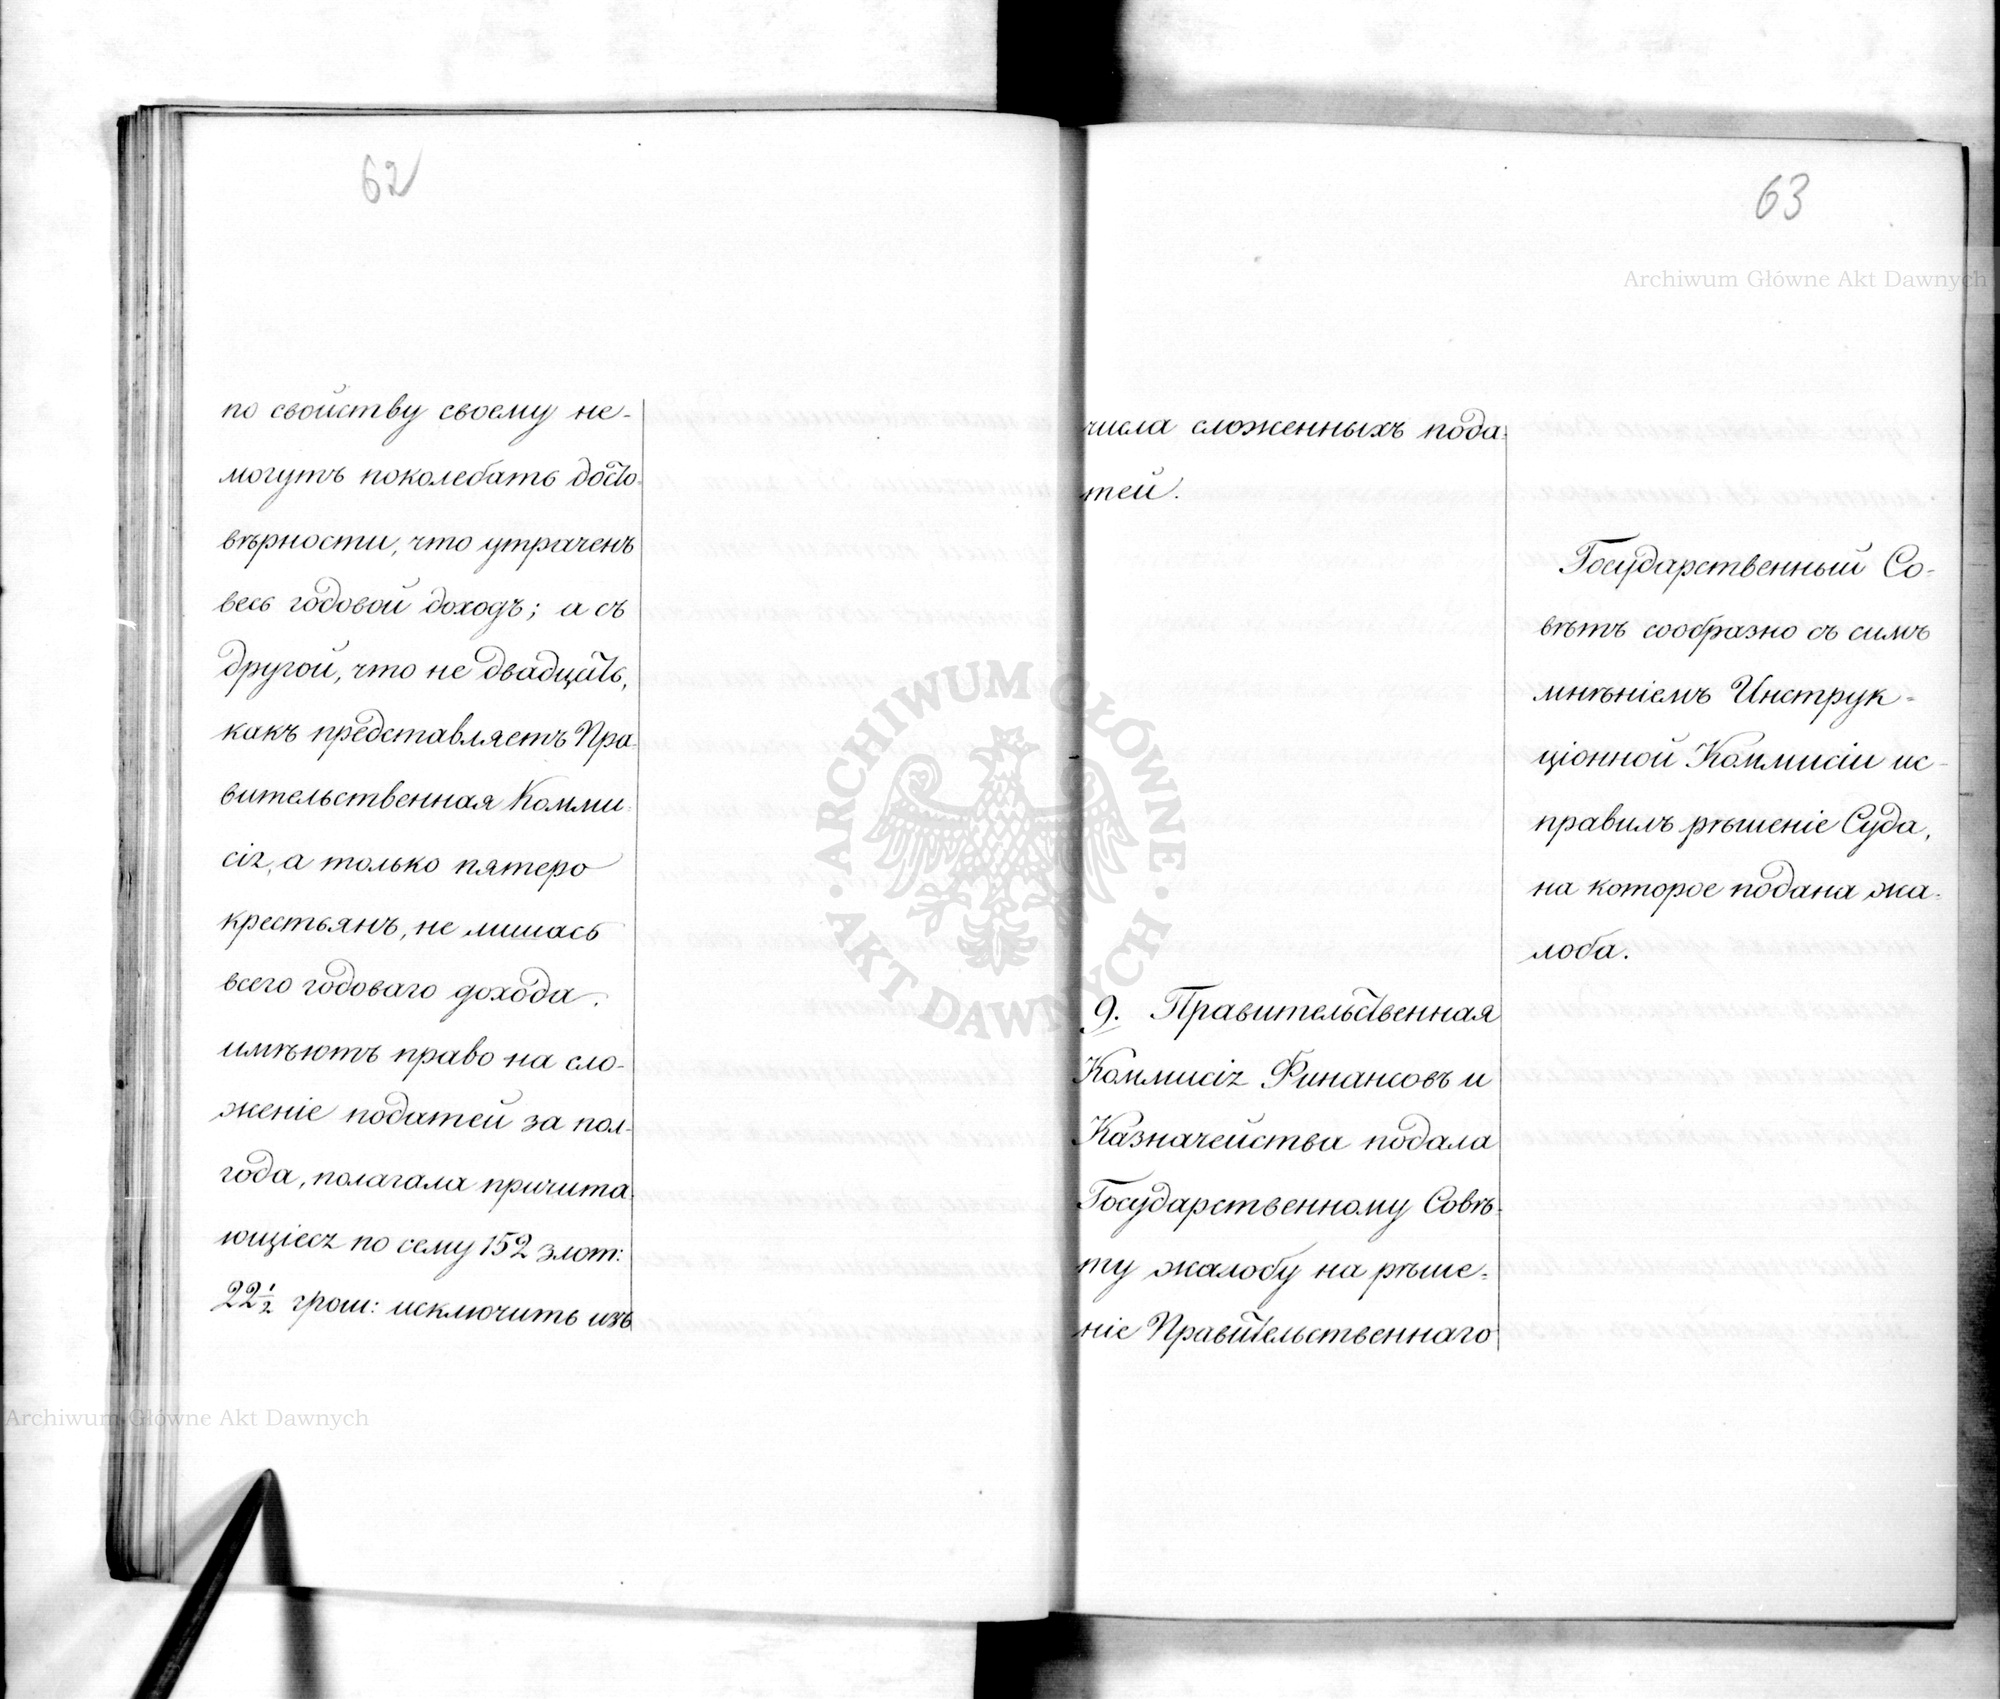 62
по свойству своему не-
могутъ поколебать досто-
вѣрности, что утраченъ
весь годовой доходъ; а съ
другой, что не двадцать,
какъ представляетъ Пра-
вительственная Комми-
сія, а только пятеро
крестьянъ, не лишась
всего годоваго дохода.
имѣютъ право на сло-
женіе податей за пол-
года, полагала причита-
ющіеся по сему 152 злот:
22½ грош: исключить изъ
63
числа сложенныхъ пода-
тей.
Государственный Со-
вѣтъ сообразно съ симъ
мнѣніемъ Инструк-
ціонной Коммисіи ис-
правилъ рѣшеніе Суда,
на которое подана жа-
лоба.
9. Правительственная
Коммисія Финансовъ и
Казначейства подала
Государственному Совѣ-
ту жалобу на рѣше-
ніе Правительственнаго
Archiwum Główne Akt Dawnych
Archiwum Główne Akt Dawnych
ARCHIWUM GŁÓWNE
AKT DAWNYCH